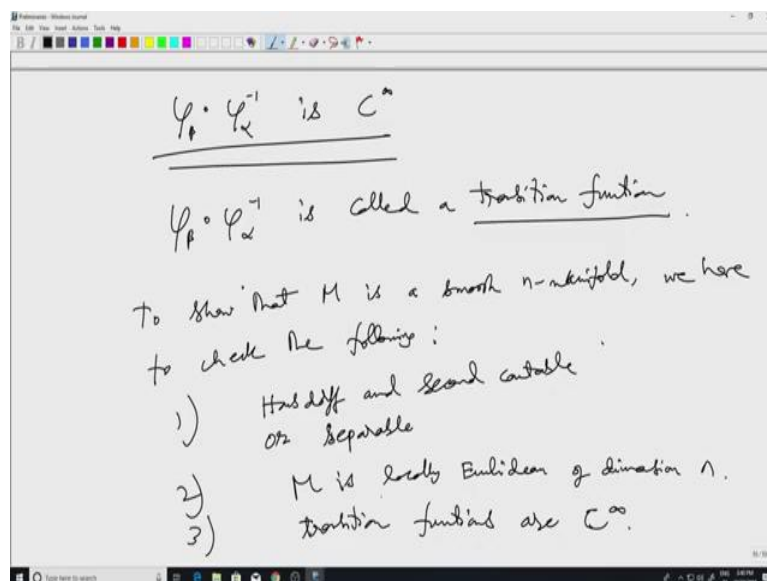 Preliminaries - Windows Journal
File Edit View Insert Actions Tools Help
φ_β ∘ φ_α^{-1} is C^∞
φ_β ∘ φ_α^{-1} is called a transition function.
To show that M is a smooth n-manifold, we have
to check the following:
1) Hausdorff and second countable
or separable
2) M is locally Euclidean of dimension n.
3) transition functions are C^∞.
Type here to search